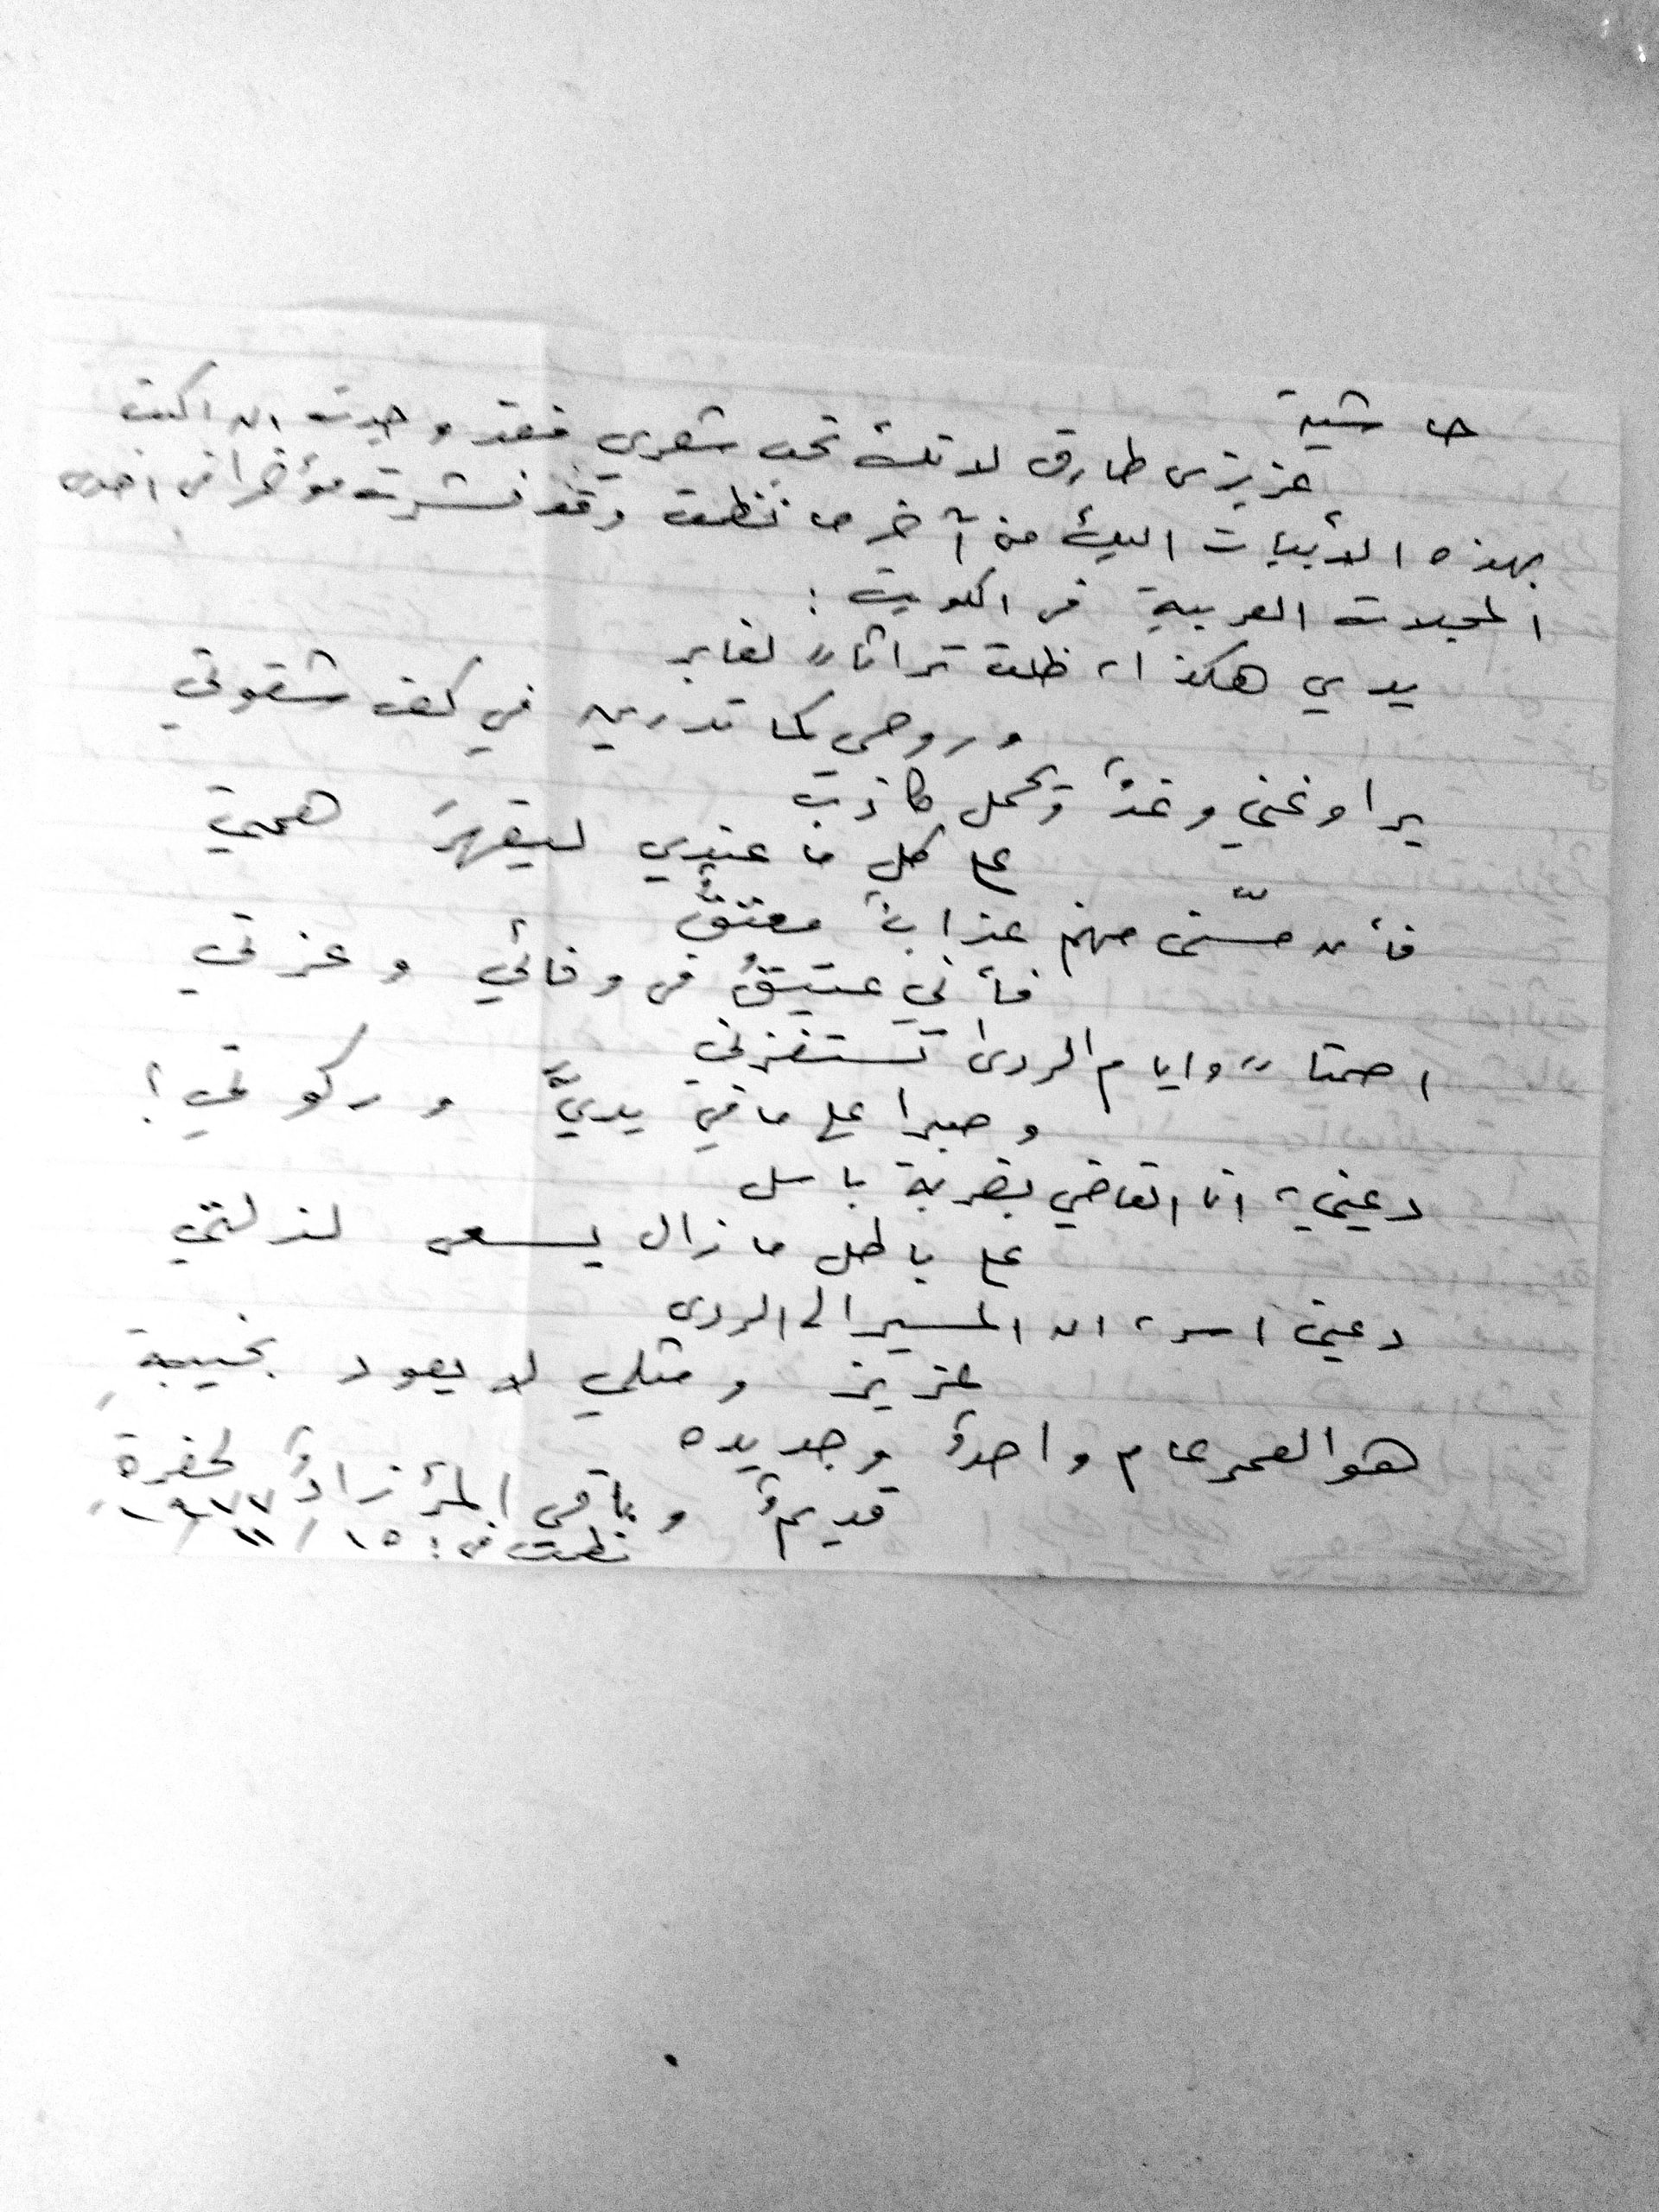 حاشية
عزيزي طارق لانك تحب شعري فقد وجدت ان اكتب
بهذه الأبيات اليك من آخر ما نظمت وقد نشرت مؤخرا في احدى
المجلات العربية في الكويت :
يدي هكذا، ظلت تراثاً لغابر
وروحي كما تدرين في كف شقوتي
يراوغني وغدٌ ويحمل كاذب
على كل ما عندي ليقهرَ همتي
فأن مسّني منهم عذابٌ معتقٌ
فأني عتيقٌ في وفائي وعزتي
اصمتا، وايام الردى تستفزني
وصبرا على ما في يديَّ وركوتي؟
دعيني، انا القاضي بضربة باسل
على باطل مازال يسعى لذلتي
دعيني اسر، ان المسير الى الردى
عزيز ومثلي لا يعود بخيبةِ
هو العمر عام واحدٌ وجديده
قديمٌ وباقي المرء زادٌ لحفرةِ
نظمت في : ١٥ / ١١ / ١٩٧٧